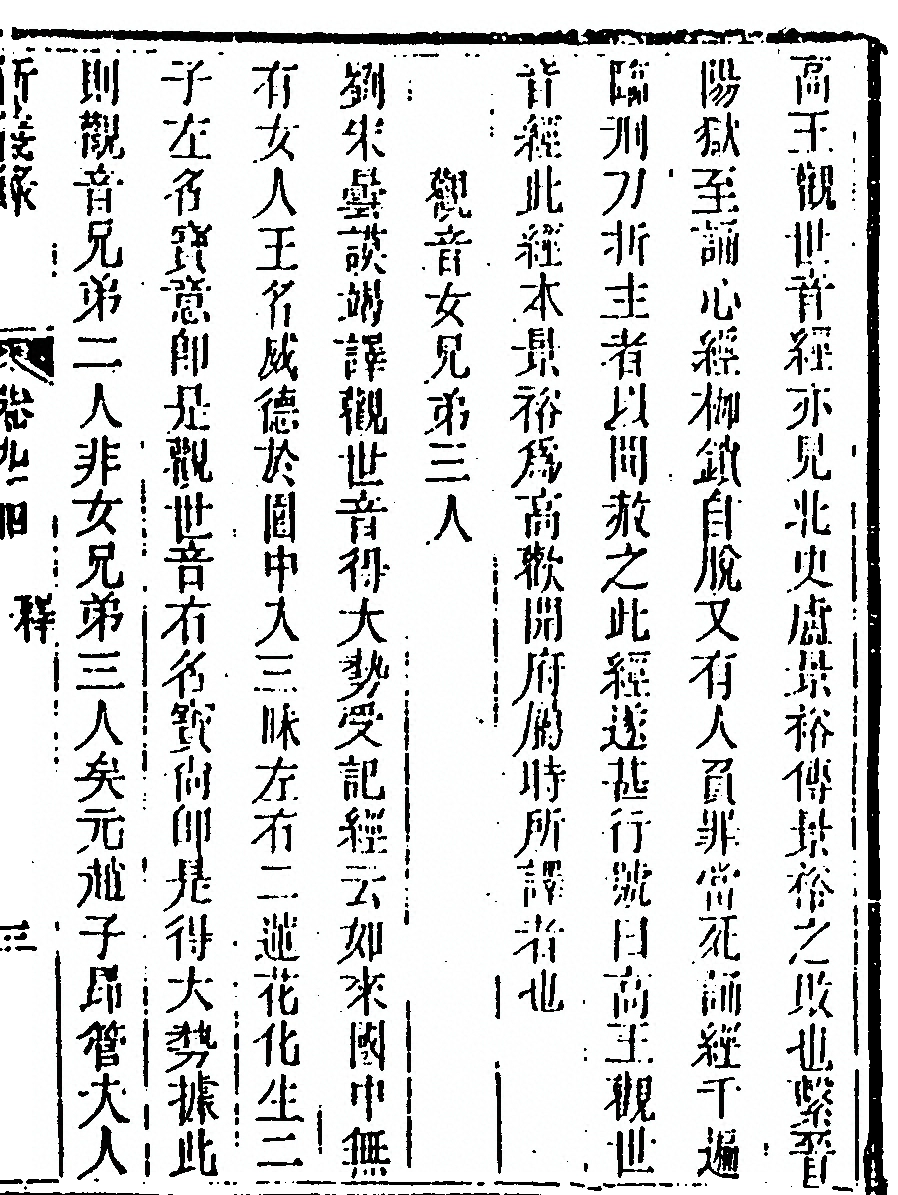 高王觀世音經亦見北史盧景裕傳景裕之敗也繫晉
陽獄至誦心經枷鎖自脫又有人負罪當死誦經千遍
臨刑刀折主者以聞赦之此經遂甚行號曰高王觀世
音經此經本景裕為高歡開府屬時所譯者也
觀音女兄弟三人
劉宋曇謨竭譯觀世音得大勢受記經云如來國中無
有女人王名威德於園中入三昧左右二蓮花化生二
子左名寶意即是觀世音右名寶尚即是得大勢據此
則觀音兄弟二人非女兄弟三人矣元趙子昂管大人
卷九 釋 三